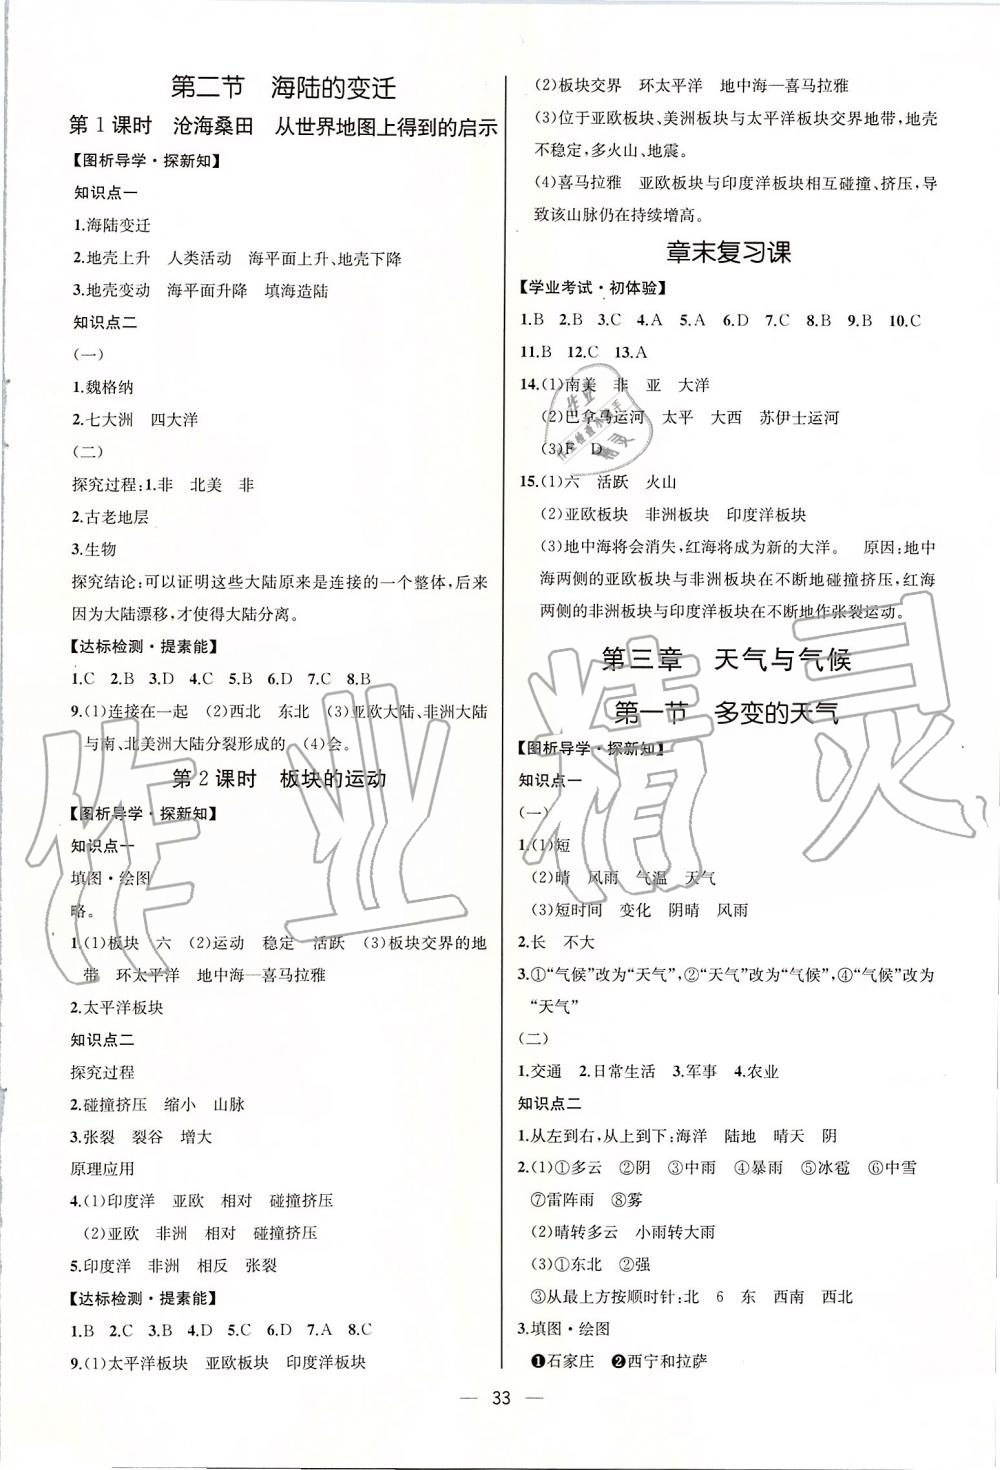 第二节　海陆的变迁
第1课时　沧海桑田　从世界地图上得到的启示
【图析导学·探新知】
知识点一
1.海陆变迁
2.地壳上升　人类活动　海平面上升、地壳下降
3.地壳变动　海平面升降　填海造陆
知识点二
(一)
1.魏格纳
2.七大洲　四大洋
(二)
探究过程:1.非　北美　非
2.古老地层
3.生物
探究结论:可以证明这些大陆原来是连接的一个整体,后来
因为大陆漂移,才使得大陆分离。
【达标检测·提素能】
1.C　2.B　3.D　4.C　5.B　6.D　7.C　8.B
9.(1)连接在一起　(2)西北　东北　(3)亚欧大陆、非洲大陆
与南、北美洲大陆分裂形成的　(4)会。
第2课时　板块的运动
【图析导学·探新知】
知识点一
填图·绘图
略。
1.(1)板块　六　(2)运动　稳定　活跃　(3)板块交界的地
带　环太平洋　地中海—喜马拉雅
2.太平洋板块
知识点二
探究过程
2.碰撞挤压　缩小　山脉
3.张裂　裂谷　增大
原理应用
4.(1)印度洋　亚欧　相对　碰撞挤压
(2)亚欧　非洲　相对　碰撞挤压
5.印度洋　非洲　相反　张裂
【达标检测·提素能】
1.B　2.C　3.B　4.D　5.C　6.D　7.A　8.C
9.(1)太平洋板块　亚欧板块　印度洋板块
(2)板块交界　环太平洋　地中海—喜马拉雅
(3)位于亚欧板块、美洲板块与太平洋板块交界地带,地壳
不稳定,多火山、地震。
(4)喜马拉雅　亚欧板块与印度洋板块相互碰撞、挤压,导
致该山脉仍在持续增高。
章末复习课
【学业考试·初体验】
1.B　2.B　3.C　4.A　5.A　6.D　7.C　8.B　9.B　10.C
11.B　12.C　13.A
14.(1)南美　非　亚　大洋
(2)巴拿马运河　太平　大西　苏伊士运河
(3)F　D
15.(1)六　活跃　火山
(2)亚欧板块　非洲板块　印度洋板块
(3)地中海将会消失,红海将成为新的大洋。　原因:地中
海两侧的亚欧板块与非洲板块在不断地碰撞挤压,红海
两侧的非洲板块与印度洋板块在不断地作张裂运动。
第三章　天气与气候
第一节　多变的天气
【图析导学·探新知】
知识点一
(一)
1.(1)短
(2)晴　风雨　气温　天气
(3)短时间　变化　阴晴　风雨
2.长　不大
3.①“气候”改为“天气”,②“天气”改为“气候”,④“气候”改为
“天气”
(二)
1.交通　2.日常生活　3.军事　4.农业
知识点二
1.从左到右,从上到下:海洋　陆地　晴天　阴
2.(1)①多云　②阴　③中雨　④暴雨　⑤冰雹　⑥中雪
⑦雷阵雨　⑧雾
(2)晴转多云　小雨转大雨
(3)①东北　②强
③从最上方按顺时针:北　6　东　西南　西北
3.填图·绘图
❶石家庄　❷西宁和拉萨
— 33 —
作业精灵